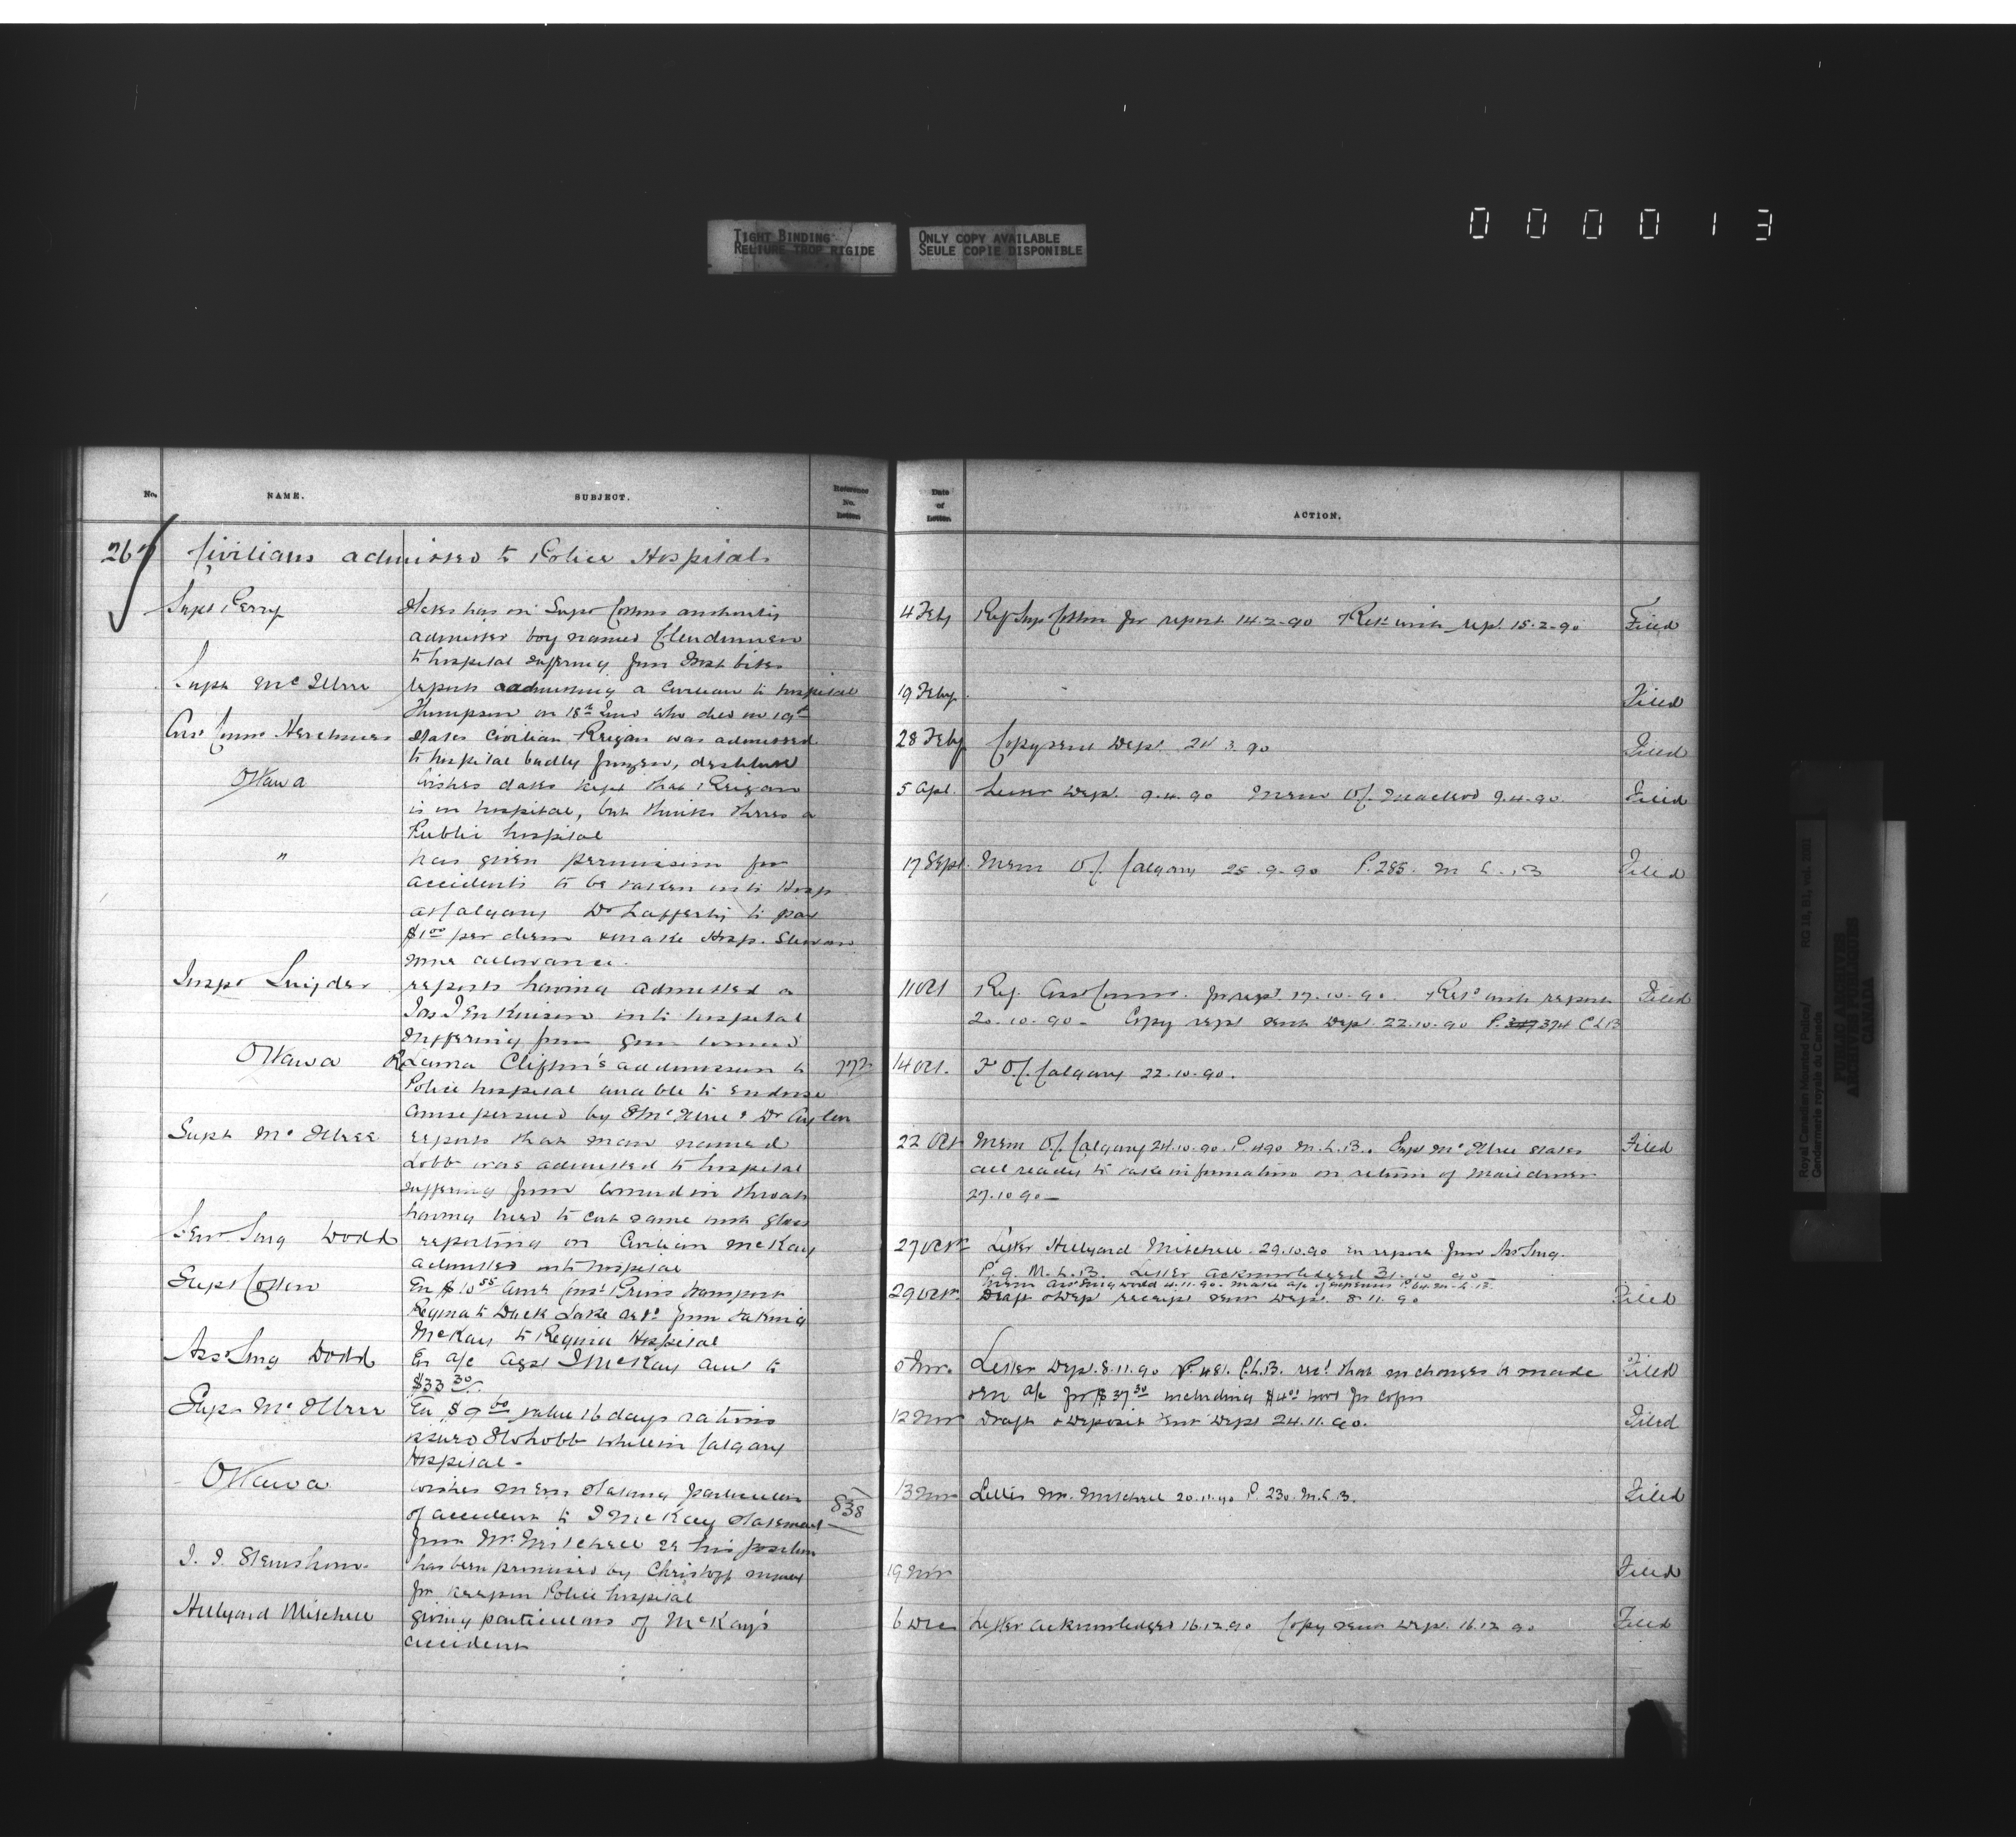 TIGHT BINDING
RELIURE TROP RIGIDE
ONLY COPY AVAILABLE
SEULE COPIE DISPONIBLE
000013
No. NAME. SUBJECT. Reference No. Letter
Civilians admitted to Police Hospitals
Supt Perry States has on Supt Cottons authority
admitted boy named
to hospital suffering from Frost bites
Supt McIllree reports admitting a civilian to hospital
Thompson on 18th who died on 19th
Asst Commr Herchmer States Civilian Reigan was admitted
to hospital badly frozen, destitute
Ottawa Wishes dates kept that Reigan
is in hospital, but thinks theres a
Public hospital
" has given permission for
accidents to be taken into Hosp
at Calgary Dr Lafferty to pay
$1.00 per diem & make Hosp. Steward
some allowance.
Inspr Snyder reports having admitted a
Jas Jenkinson into hospital
suffering from gun wound
Ottawa Re Lama Clifton's admission to 772
Police hospital unable to endorse
course persued by S McIllree & Dr Aylen
Supt McIllree reports that man named
Lobb was admitted to hospital
suffering from wound in throat
having tried to cut same with glass
Surg Dodd reporting on Civilian McKay
admitted into hospital
Supt Cotton En $10.55 amt Const transport
Regina to Duck Lake from taking
McKay to Regina Hospital
Asst Surg Dodd En a/c agst J McKay amt to
$33.30
Supt McIllree En $9.60 value 16 days rations
issued while in Calgary
Hospital.
Ottawa wishes Mem stating particulars 838
of accident to J McKay Statement
from Mr Mitchell re his position
has been promised by Christoff money
for keep in Police hospital
Hillyard Mitchell giving particulars of McKay's
accident
Date of Letter ACTION.
4 Feby Ref Sup Cotton for report 14.2.90 Ret with rept 15.2.90 Filed
19 Feby Filed
28 Feby Copy sent Dept 24.3.90 Filed
5 Apl. Letter Dept. 9.4.90 Mem O/C Macleod 9.4.90. Filed
17 Sept Mem O/C Calgary 25.9.90 P.285. M L.B Filed
11 Oct Ref. Asst Commr. for rept 17.10.90. Retd with report Filed
20.10.90 - Copy rept sent Dept 22.10.90 P. 374 C L B
14 Oct. T O/C Calgary 22.10.90.
22 Oct Mem O/C Calgary 24.10.90. P 490 M.L.B. Supt McIllree states Filed
all ready to take information on return of
27.10.90 -
27 Oct Letter Hillyard Mitchell 29.10.90 en report from Ass Surg.
P.9. M.L.B. Letter acknowledged 31.10.90
Mem Ass Surg Dodd 4.11.90. make a/c of expenses P 64 M.L.B.
29 Oct Draft & Dept receipt sent Dept. 8.11.90 Filed
5 Nov. Letter Dept. 8.11.90 P. 481. C.L.B. that no charges be made Filed
a/c for $37.30 including $4.00 for
12 Nov Draft & Deposit sent Dept 24.11.90. Filed
13 Nov Letter Mr. Mitchell 20.11.90 P. 230. M.L.B. Filed
19 Nov Filed
6 Dec Letter acknowledged 16.12.90 Copy sent Dept. 16.12.90 Filed
Royal Canadian Mounted Police/
Gendarmerie royale du Canada
PUBLIC ARCHIVES
ARCHIVES PUBLIQUES
CANADA